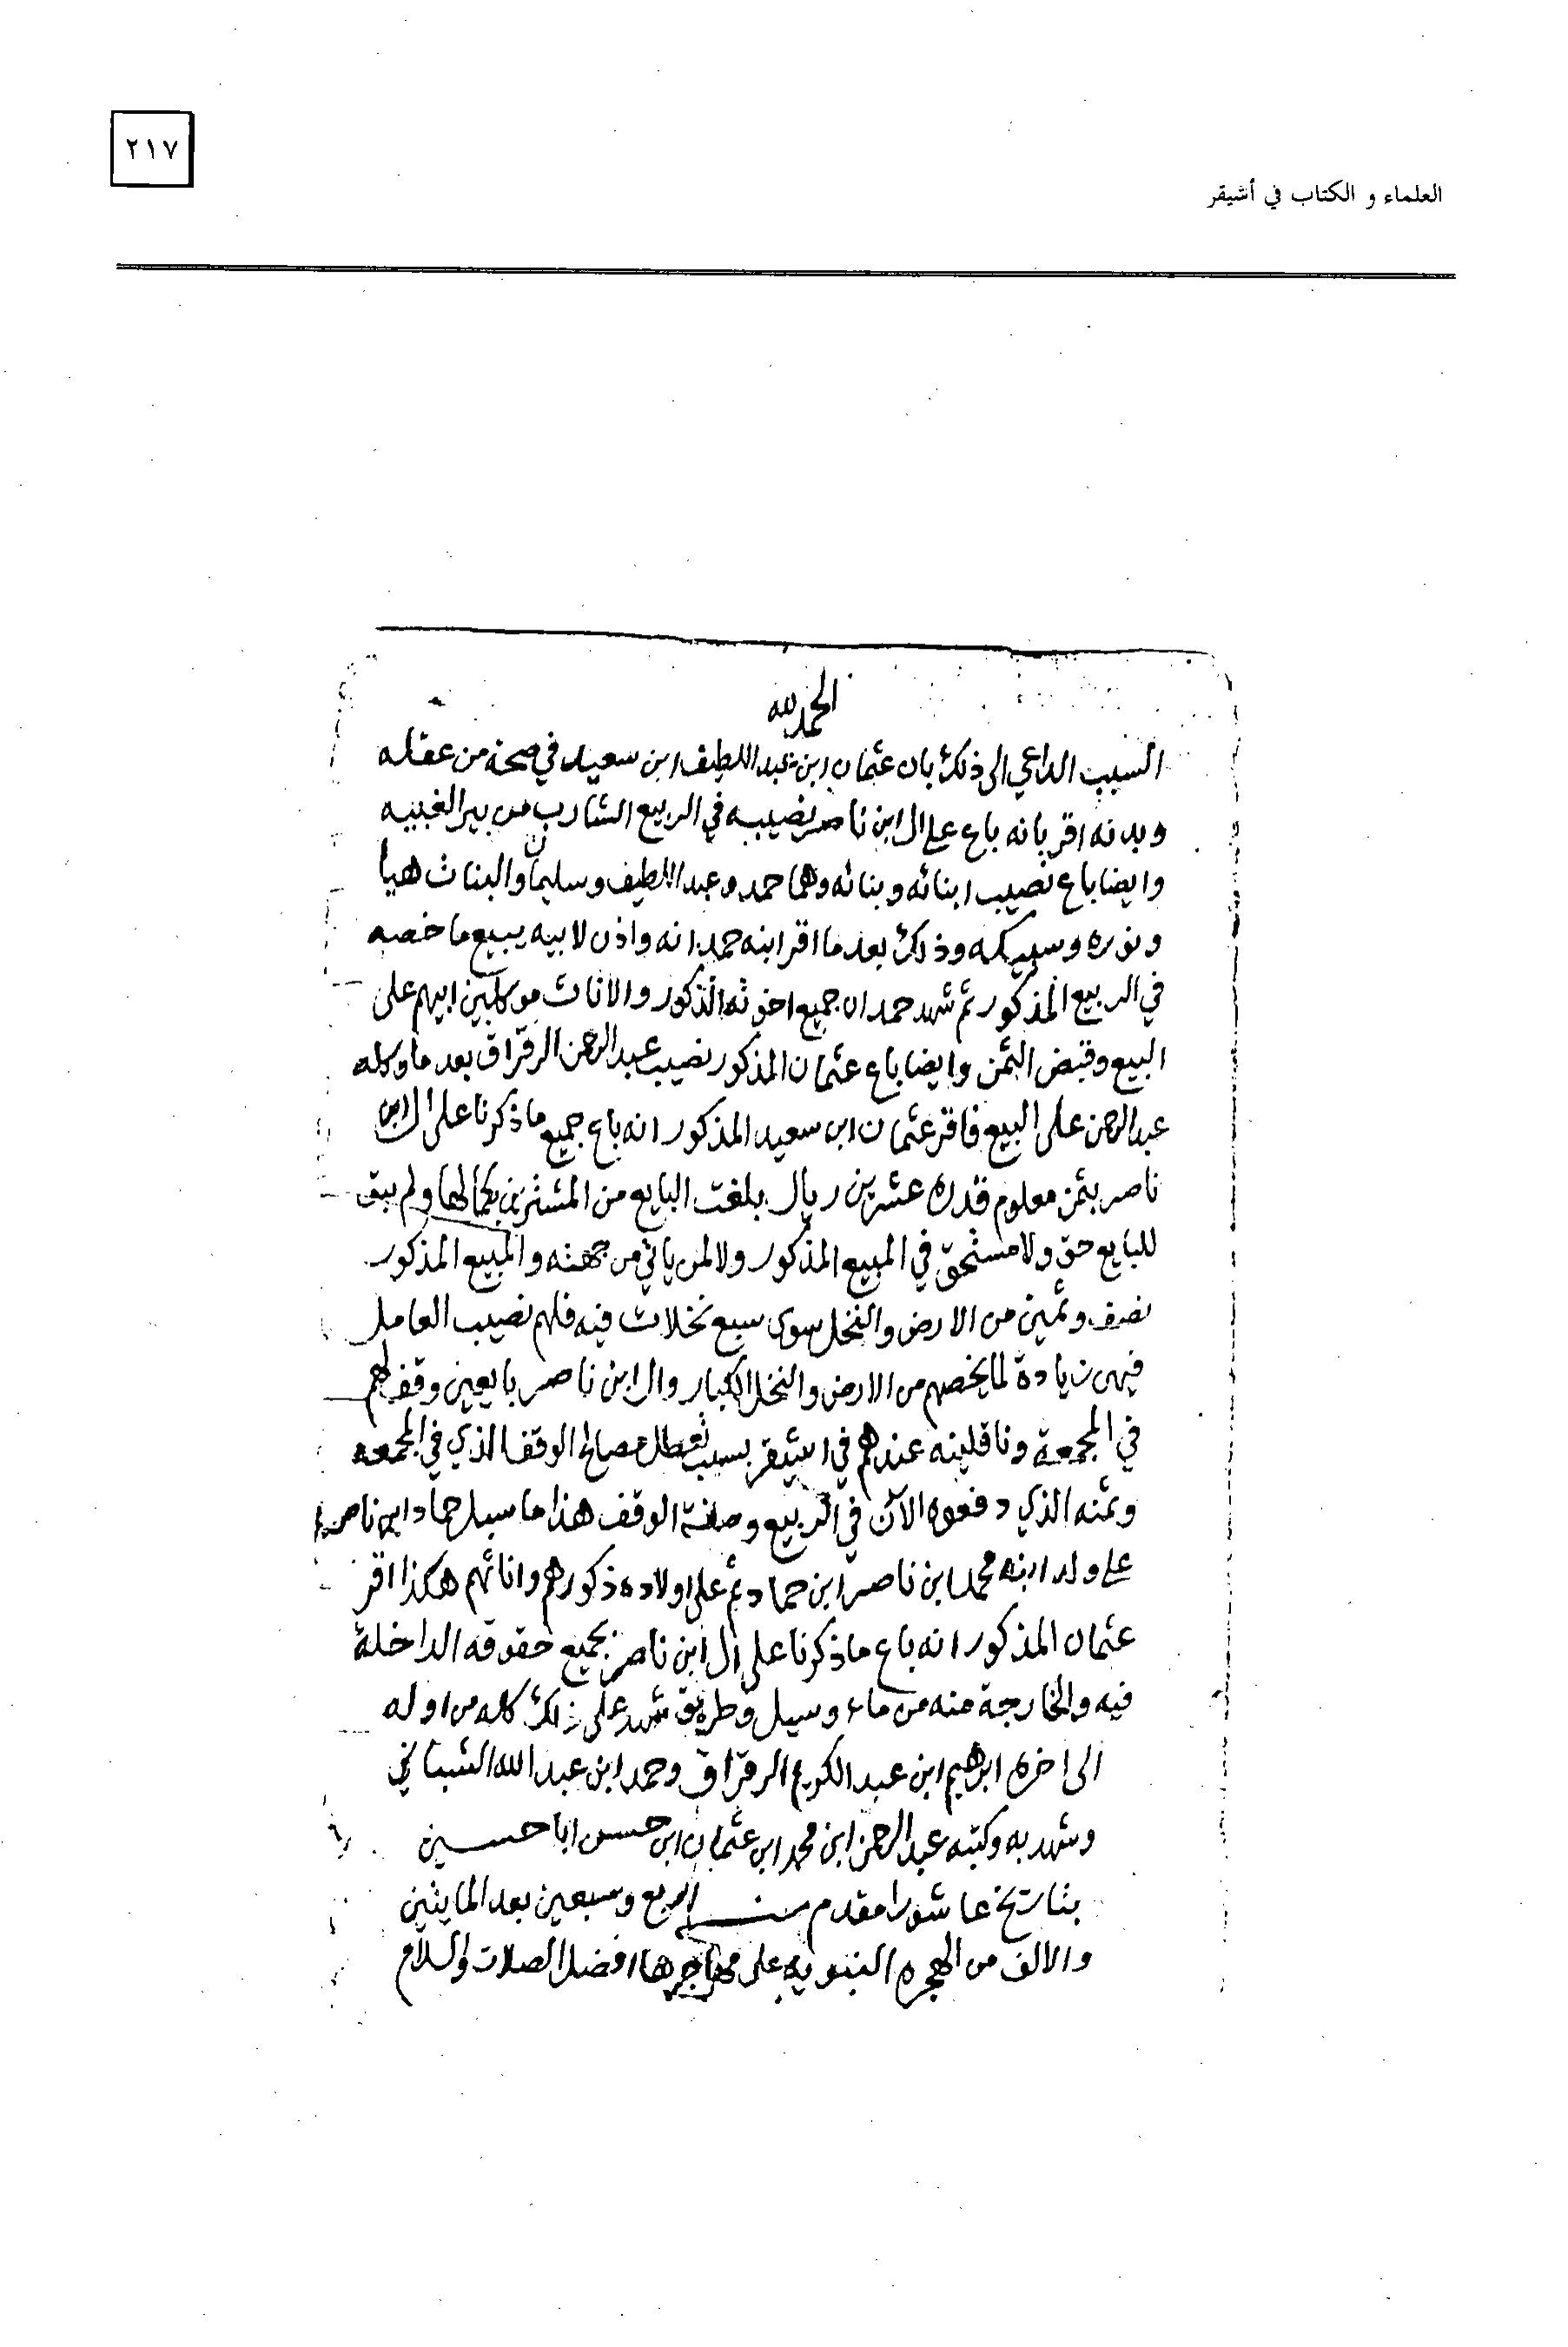 ٢١٧
العلماء و الكتاب في أشيقر
الحمد لله
السبب الداعي الى ذلك بان عثمان ابن عبد اللطيف ابن سعيد في صحة من عقله
وبدنه اقر بانه باع على ال ابن ناصر نصيبه في الربيع الشارب من بير الغبيه
وايضا باع نصيب ابنائه وبناته وهما حمد وعبد اللطيف وسليمان والبنات هيا
ونوره وسبيكه وذلك بعد ما اقر ابنه حمد انه واذن لابيه يبيع ما خصه
في الربيع المذكور ثم شهد حمد ان جميع اخوته الذكور والاناث موكلين ابيهم على
البيع وقبض الثمن وايضا باع عثمان المذكور نصيب عبد الرحمن الرقراق بعد ما وكله
عبد الرحمن على البيع فاقر عثمان ابن سعيد المذكور انه باع جميع ما ذكرنا على ال ابن
ناصر بثمن معلوم قدره عشرين ريال بلغت البايع من المشترين بكمالها ولم يبق
للبايع حق ولا مستحق في المبيع المذكور ولا لمن ياتي من جهته والمبيع المذكور
نصف وثمين من الارض والنخل سوى سبع نخلات فيه فلهم نصيب العامل
فيهن زيادة لما يخصهم من الارض والنخل الكبار وال ابن ناصر بايعين وقف لهم
في المجمعة وناقلينه عندهم في اشيقر بسبب تعطل مصالح الوقف الذي في المجمعه
وثمنه الذي دفعوه الآن في الربيع وصفة الوقف هذا ما سبل حماد ابن ناصر
على ولد ابنه محمد ابن ناصر ابن حماد ثم على اولاده ذكورهم واناثهم هكذا اقر
عثمان المذكور انه باع ما ذكرنا على ال ابن ناصر بجميع حقوقه الداخلة
فيه والخارجة منه من ماء وسيل وطريق شهد على ذلك كله من اوله
الى اخره ابرهيم ابن عبد الكريم الرقراق وحمد ابن عبد الله الشباني
وشهد به وكتبه عبد الرحمن ابن محمد ابن عثمان ابن حسن ابا حسين
بتاريخ عاشورا مقدم سنة اربع وسبعين بعد المايتين
والالف من الهجره النبويه على مهاجرها افضل الصلات والسلام